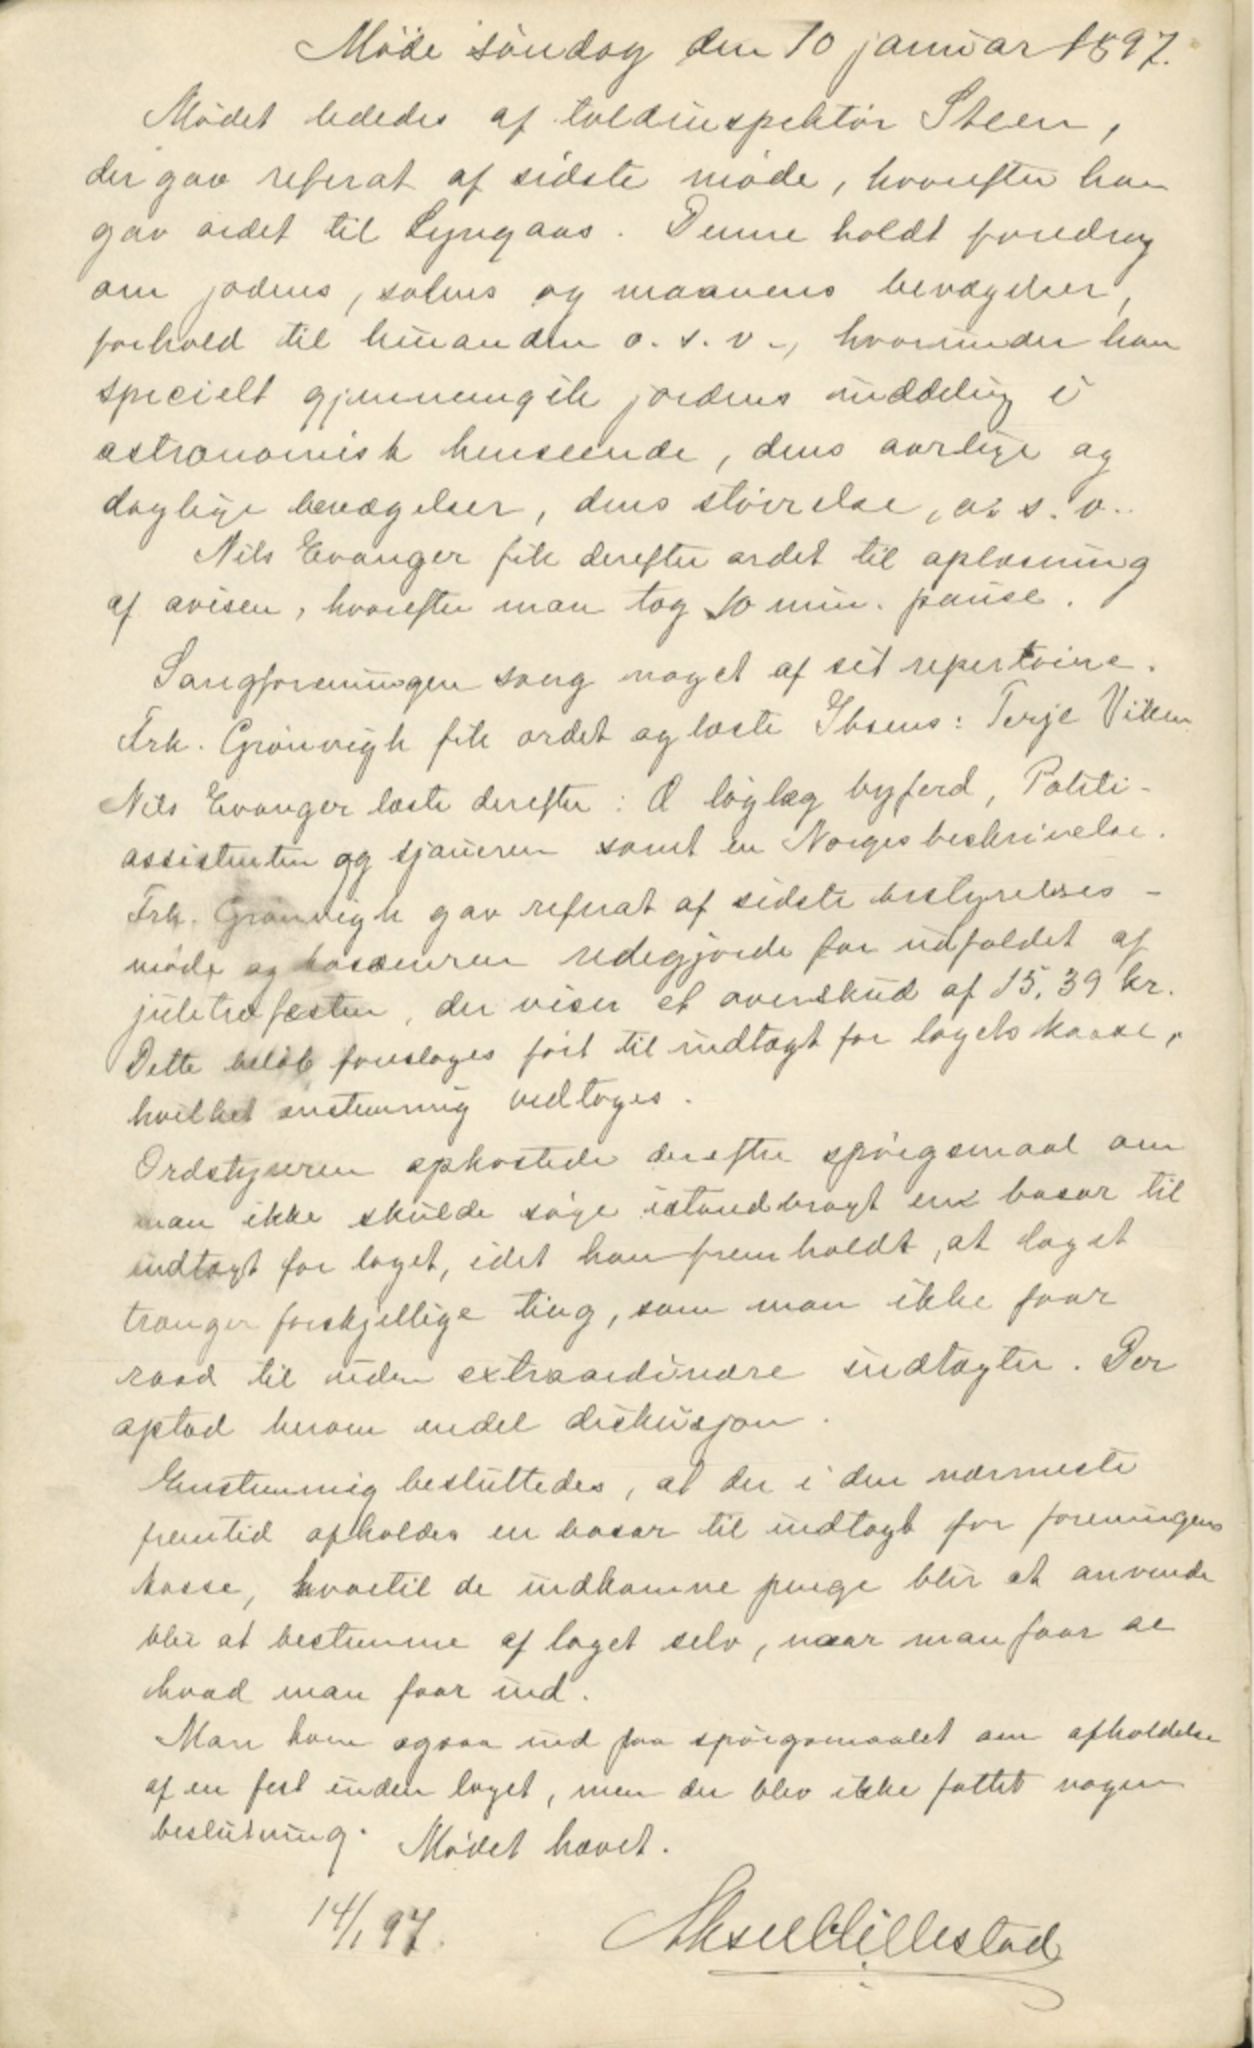 Møde søndag den 10 januar 1897.
Mødet lededes af toldinspektør Steen,
der gav referat af sidste møde, hvorefter han
gav ordet til Lyngaas. Denne holdt foredrag
om jodens, solens og maanens bevægelser,
forhold til hinanden o. s. v., hvorunder han
specielt gjennemgik jordens inddeling i
astronomisk henseende, dens aarlige og
daglige bevægelser, dens størrelse, o. s. v..
Nils Evanger fik derefter ordet til oplæsning
af avisen, hvorefter man tog 10 min. pause.
Sangforeningen sang noget af sit repertoire.
Frk. Grønvigh fik ordet og læste Ibsens: Terje Viken
Nils Evanger læste derefter: O løglæg byferd, Politi-
assistenten og sjaueren samt en Norges beskrivelse.
Frk. Grønvigh gav referat af sidste bestyrelses-
møde og kassereren redegjorde for udfaldet af
juletræfesten, der viser et overskud af 15,39 kr.
Dette beløb foreslages ført til indtægt for lagets kasse,
hvilket enstemmig vedtoges.
Ordstyreren opkastede derefter spørgsmaal om
man ikke skulde søge istandbragt en basar til
indtægt for laget, idet han fremholdt, at laget
trænger forskjellige ting, som man ikke faar
raad til uden extraordinære indtægter. Der
opstod herom endel diskusjon.
Enstemmig besluttedes, at der i den nærmeste
fremtid afholdes en basar til indtægt for foreningens
kasse, hvortil de indkomne penge blir at anvende
blir at bestemme af laget selv, naar man faar se
hvad man faar ind.
Man kom ogsaa ind paa spørgsmaalet om afholdelse
af en fest inden laget, men der blev ikke fattet nogen
beslutning. Mødet hævet.
14/1 97. Aksel Hillestad